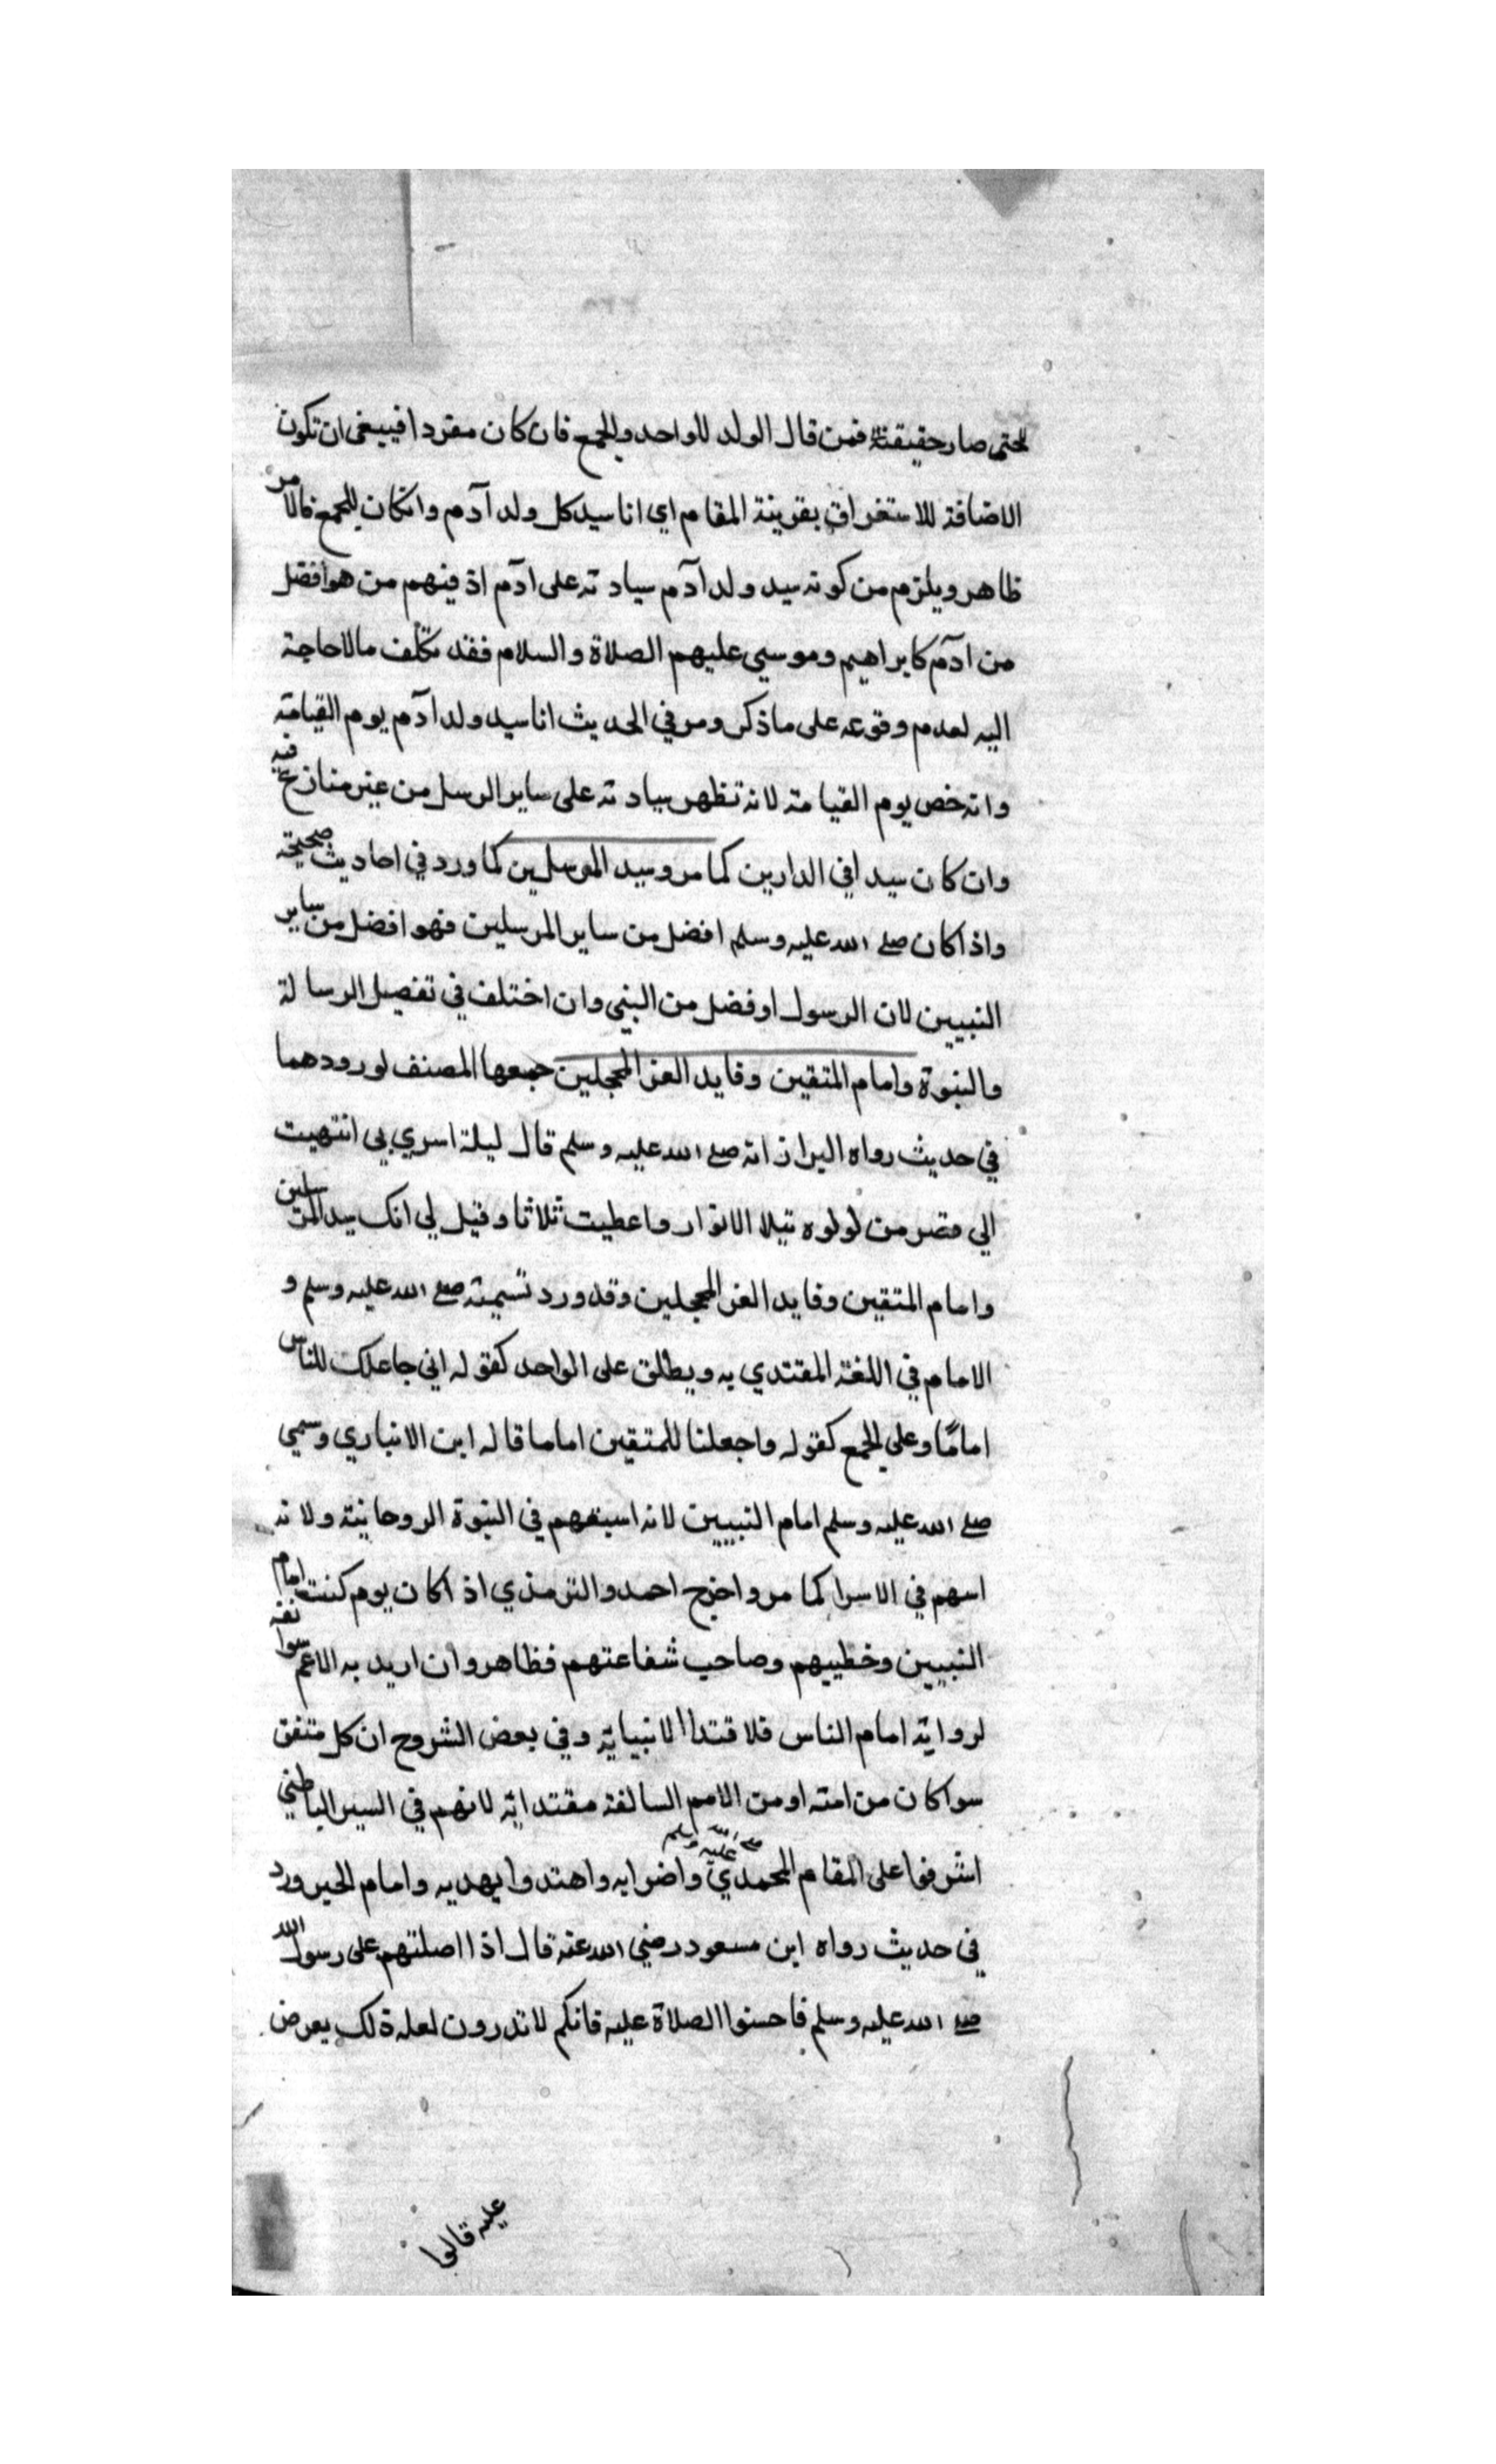 حتى صار حقيقة فمن قال الولد للواحد وللجمع فان كان مفردا فينبغى ان تكون
الاضافة للاستغراق بقرينة المقام اي انا سيد كل ولد آدم وان كان للجمع فالامر
ظاهر ويلزم من كونه سيد ولد آدم سيادته على ادم اذ فيهم من هو افضل
من ادم كابراهيم وموسي عليهم الصلاة والسلام فقد تكلف مالاحاجة
اليه لعدم وقوعه على ماذكر ومر في الحديث انا سيد ولد ادم يوم القيامة
وانه خص يوم القيامة لانه تظهر سيادته على ساير الرسل من غير منازع فيه
وان كان سيدا في الدارين كما مر وسيد المرسلين كما ورد في احاديث صحيحة
واذا كان صلى الله عليه وسلم افضل من ساير المرسلين فهو افضل من ساير
النبيين لان الرسول اوفضل من النبى وان اختلف في تفصيل الرسالة
والنبوة وامام المتقين وقايد الغر المحجلين جمعها المصنف لورودهما
في حديث رواه البزاز انه صلى الله عليه وسلم قال ليلة اسري بي انتهيت
الي قصر من لولوه تيلا الانوار واعطيت ثلاثا وقيل لي انك سيد المرسلين
وامام المتقين وقايد الغر المحجلين وقد ورد تسميته صلى الله عليه وسلم و
الامام في اللغة المقتدي به ويطلق على الواحد كقوله اني جاعلك للناس
امامًا وعلي الجمع كقوله واجعلنا للمتقين اماما قاله ابن الانباري وسمي
صلى الله عليه وسلم امام النبيين لانه اسبقهم في النبوة الروحانية ولانه
امهم في الاسرا كما مر واخرج احمد والترمذي اذا كان يوم كنت امام
النبيين وخطيبهم وصاحب شفاعتهم فظاهر وان اريد به الاعم
لرواية امام الناس فلاقتدا الانبيابه وفي بعض الشروح ان كل متفق
سوا كان من امته او من الامم السالفة مقتدابه لانهم في السير الباطني
اشرفوا على المقام المحمدي صلى الله عليه وسلم واضوابه واهتدوا بهديه وامام الخير ورد
في حديث رواه ابن مسعود رضي الله عنه قال اذا اصلتهم على رسول الله
صلى الله عليه وسلم فاحسنوا الصلاة عليه فانكم لا تدرون لعل ذلك يعرض
عليه قالوا